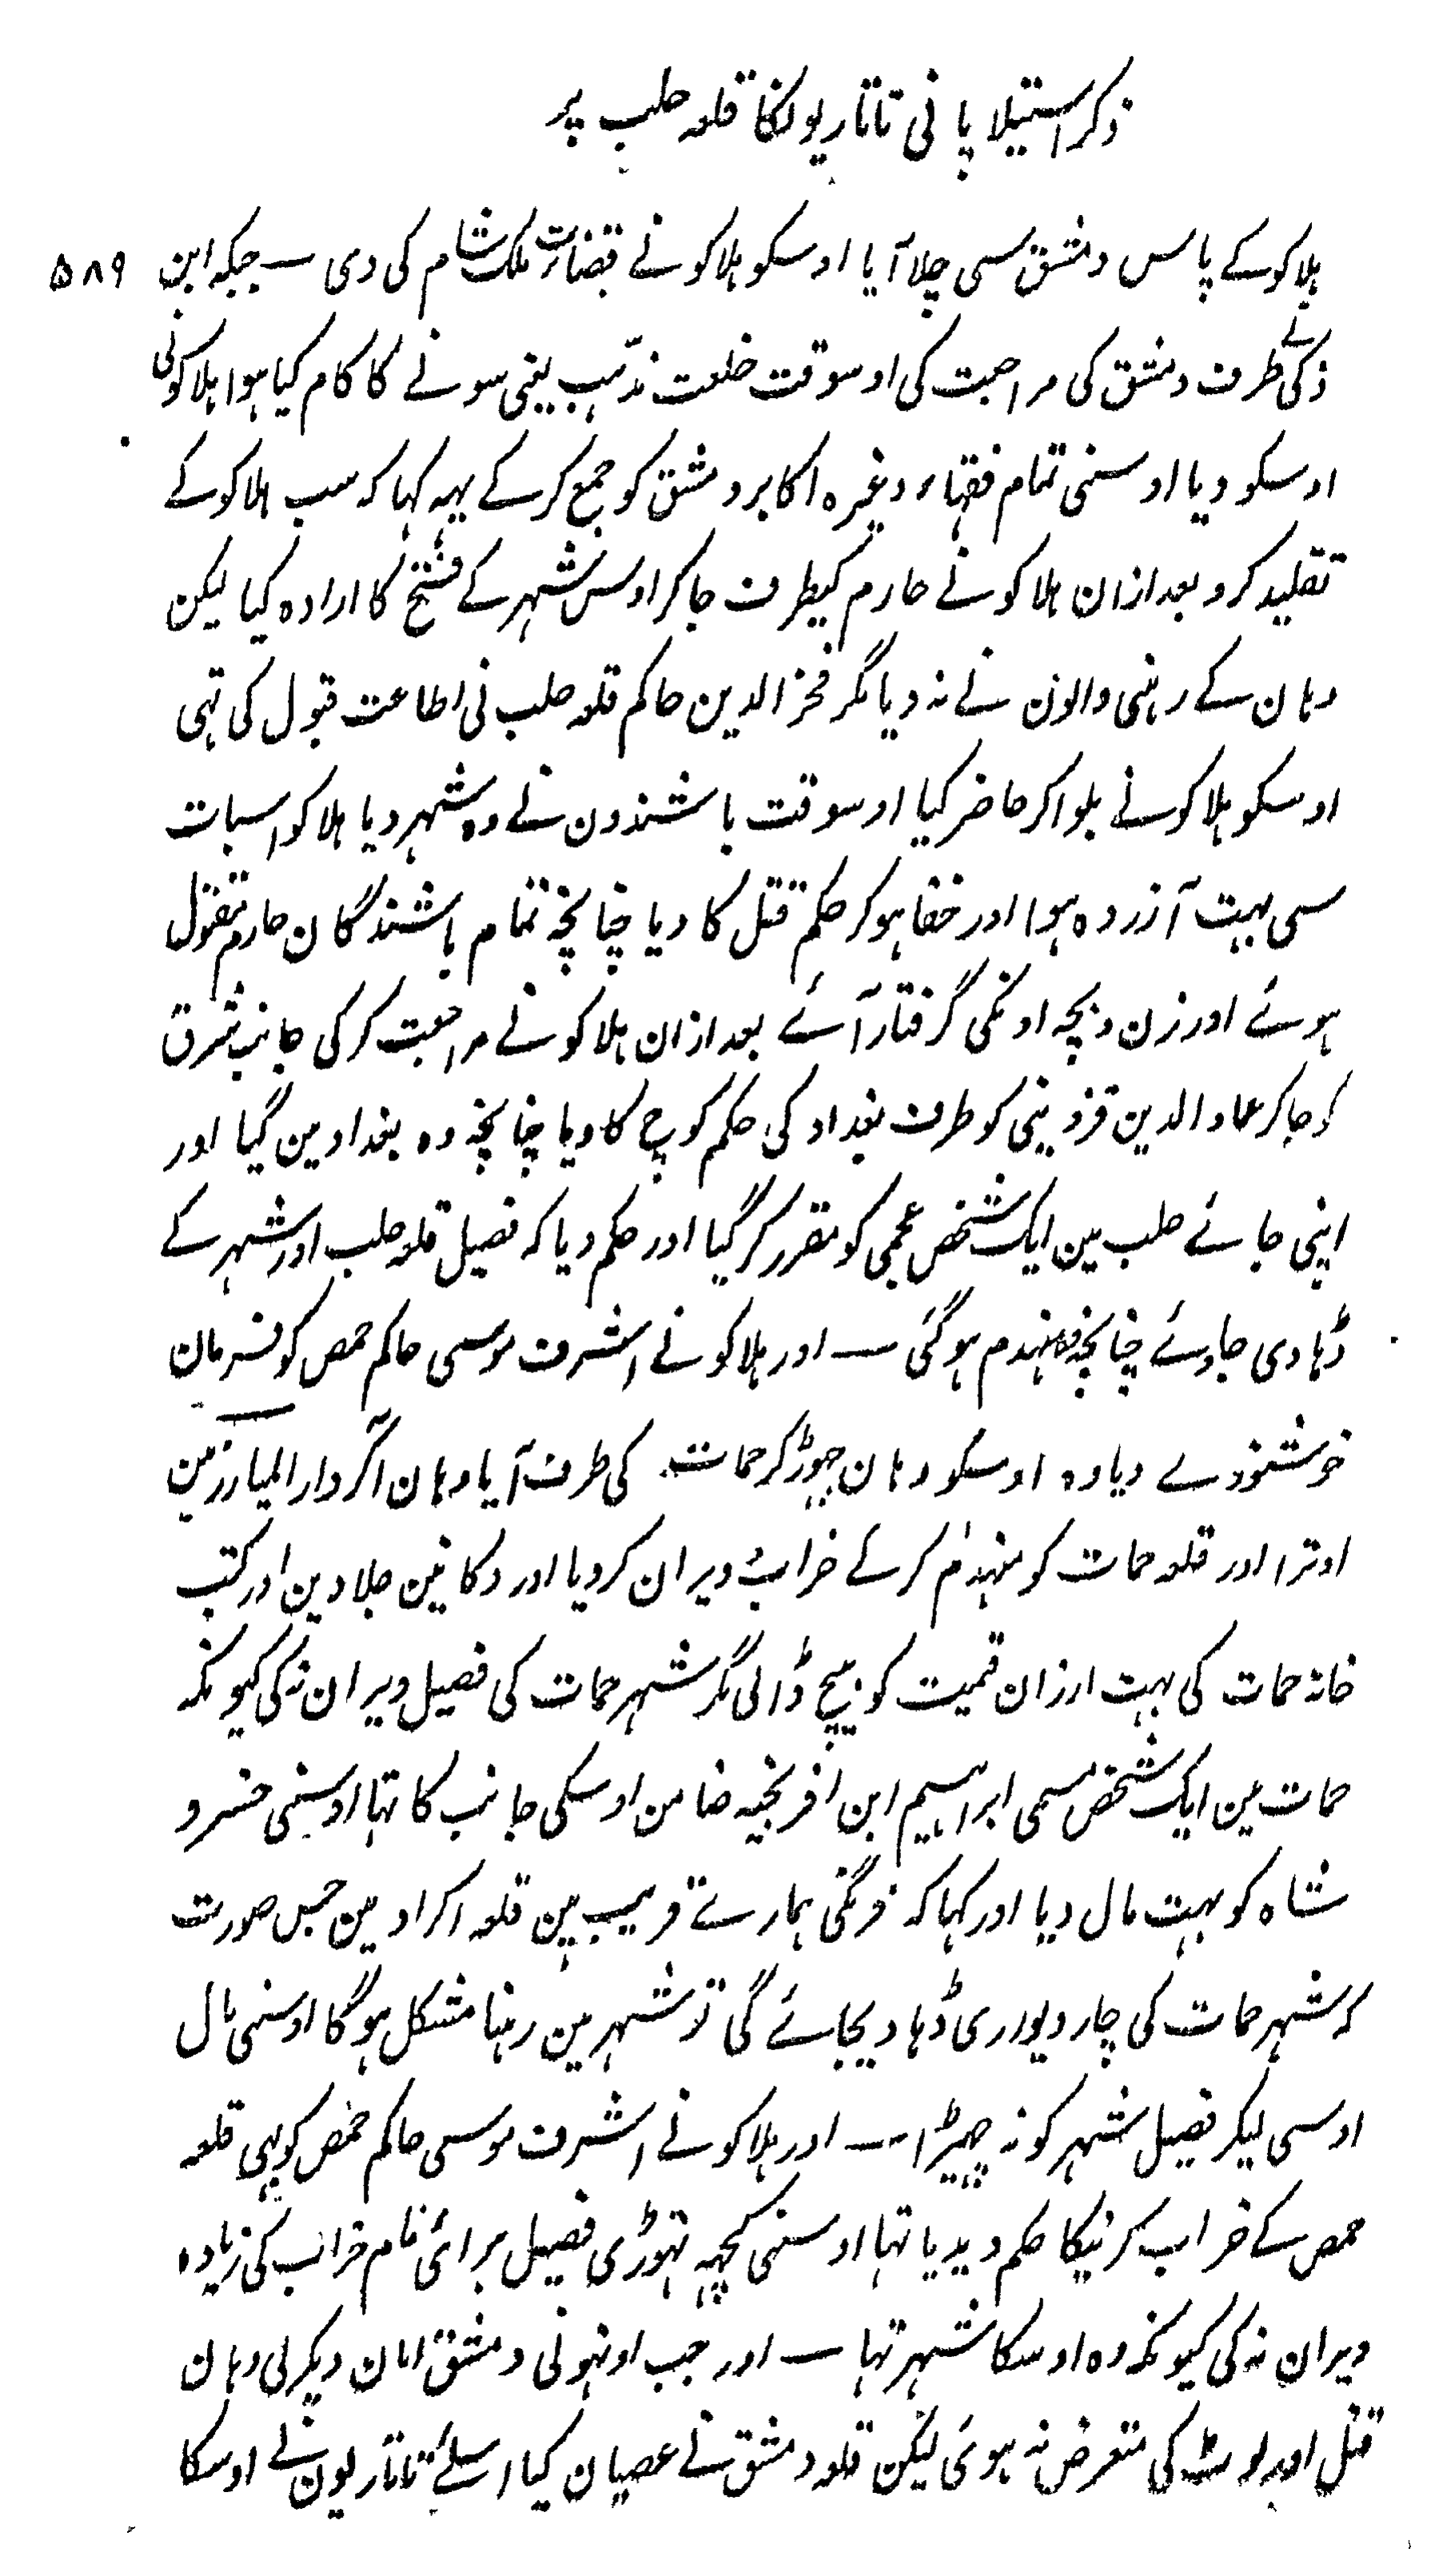 ذکر استیلا پانی تاتاریونکا قلعہ حلب پر
ہلاکو کے پاس دمشق سی چلا آیا اوسکو ہلاکو نے قضاءت ملک شام کی دی ــ جبکہ ابن ۵۸۹
زکی نے طرف دمشق کی مراجعت کی اوسوقت خلعت مذہب یعنی سونے کا کام کیا ہوا ہلاکونی
اوسکو دیا اوسنی تمام فقہاء وغیرہ اکابر دمشق کو جمع کر کے یہہ کہا کہ سب ہلاکو کے
تقلید کرو بعد ازان ہلاکو نے حارم کیطرف جا کر اوس شہر کے فتح کا ارادہ کیا لیکن
وہان کے رہنی والون نے نہ دیا مگر فخر الدین حاکم قلعہ حلب نی اطاعت قبول کی تہی
اوسکو ہلاکو نے بلوا کر حاضر کیا اوسوقت باشندون نے وہ شہر دیا ہلاکو اسبات
سی بہت آزردہ ہوا اور خفا ہو کر حکم قتل کا دیا چنانچہ تمام باشندگان حارم مقتول
ہوئے اور زن و بچہ اونکی گرفتار آئے بعد ازان ہلاکو نے مراجعت کر کی جانب شرق
کو جا کر عماد الدین قزوینی کو طرف بغداد کی حکم کوچ کا دیا چنانچہ وہ بغداد مین گیا اور
اپنی جائے حلب مین ایک شخص عجمی کو مقرر کر گیا اور حکم دیا کہ فصیل قلعہ حلب اور شہر کے
ڈہا دی جاوئے چنانچہ منہدم ہو گئی ــ اور ہلاکو نے اشرف موسی حاکم حمص کو فرمان
خوشنودے دیا وہ اوسکو وہان چہوڑ کر حمات کی طرف آیا وہان آ کر دار المبارز مین
اوترا اور قلعہ حمات کو منہدم کر کے خراب و ویران کر دیا اور دکانین جلا دین اور کتب
خانہ حمات کی بہت ارزان قیمت کو بیچ ڈالی مگر شہر حمات کی فصیل ویران نکی کیونکہ
حمات مین ایک شخص مسمی ابراہیم ابن افرنجیہ ضامن اوسکی جانب کا تہا اوسنی خسرو
شاہ کو بہت مال دیا اور کہا کہ فرنگی ہمارے قریب ہین قلعہ اکراد مین جس صورت
کہ شہر حمات کی چار دیواری ڈہا دیجائے گی تو شہر مین رہنا مشکل ہوگا اوسنی مال
اوسی لیکر فصیل شہر کو نہ چہیڑا ــ اور ہلاکو نے اشرف موسی حاکم حمص کو بہی قلعہ
حمص کے خراب کرنیکا حکم دیدیا تہا اوسنی کچہہ تہوڑی فصیل برائی نام خراب کی زیادہ
ویران نہ کی کیونکہ وہ اوسکا شہر تہا ــ اور جب اونہونی دمشق امان دیکر لی وہان
قتل اور لوٹ کی متعرض نہ ہوئی لیکن قلعہ دمشق نے عصیان کیا اسلئے تاتاریون نے اوسکا